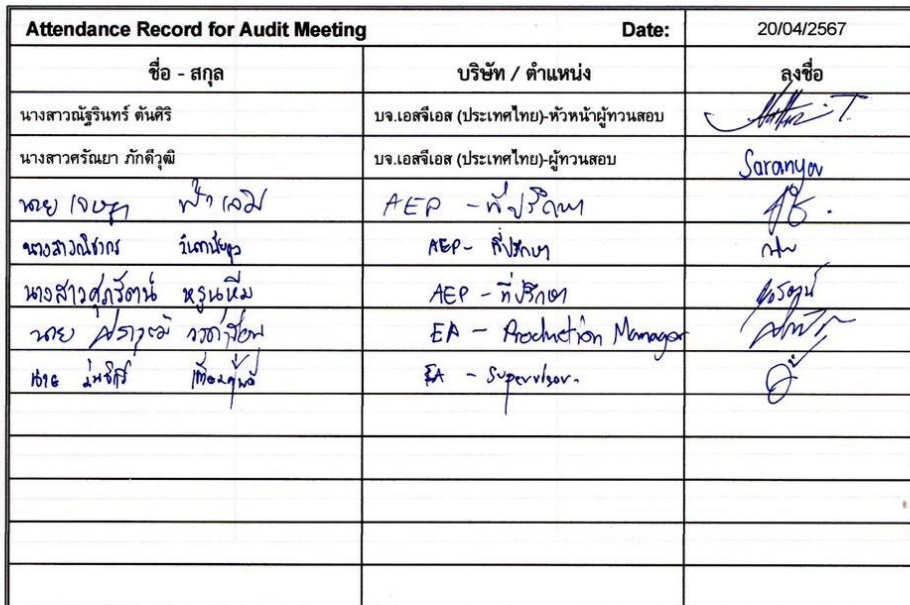 Attendance Record for Audit Meeting Date: 20/04/2567
ชื่อ - สกุล บริษัท / ตำแหน่ง ลงชื่อ
นางสาวณัฐรินทร์ ตันศิริ บจ.เอสจีเอส (ประเทศไทย)-หัวหน้าผู้ทวนสอบ
นางสาวศรัณยา ภักดีวุฒิ บจ.เอสจีเอส (ประเทศไทย)-ผู้ทวนสอบ Saranya
นาย AEP - ที่ปรึกษา
นางสาวณิชากร AEP - ที่ปรึกษา
นางสาวศุภรัตน์ หรูนหีม AEP - ที่ปรึกษา ศุภรัตน์
นาย EA - Production Manager
นาย EA - Supervisor.